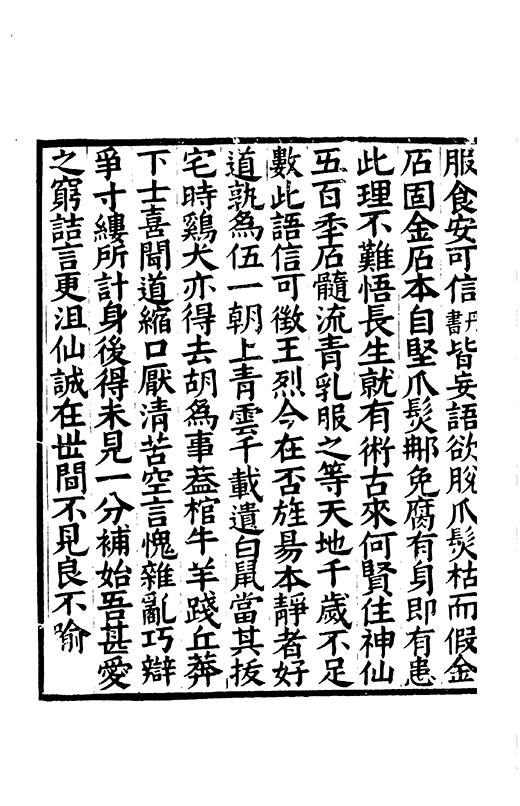 服食安可信丹書皆妄語欲脫爪髮枯而假金
石固金石本自堅爪髮郍免腐有身即有患
此理不難悟長生就有術古來何賢住神仙
五百年石髓流青乳服之等天地千歲不足
數此語信可徵王烈今在否旌昜本靜者好
道孰為伍一朝上青雲千載遺白鼠當其拔
宅時鷄犬亦得去胡為事葢棺牛羊踐丘莽
下士喜聞道縮口厭清苦空言愧雜亂巧辯
爭寸縷所計身後得未見一分補始吾甚愛
之窮詰言更沮仙誠在世間不見良不喻